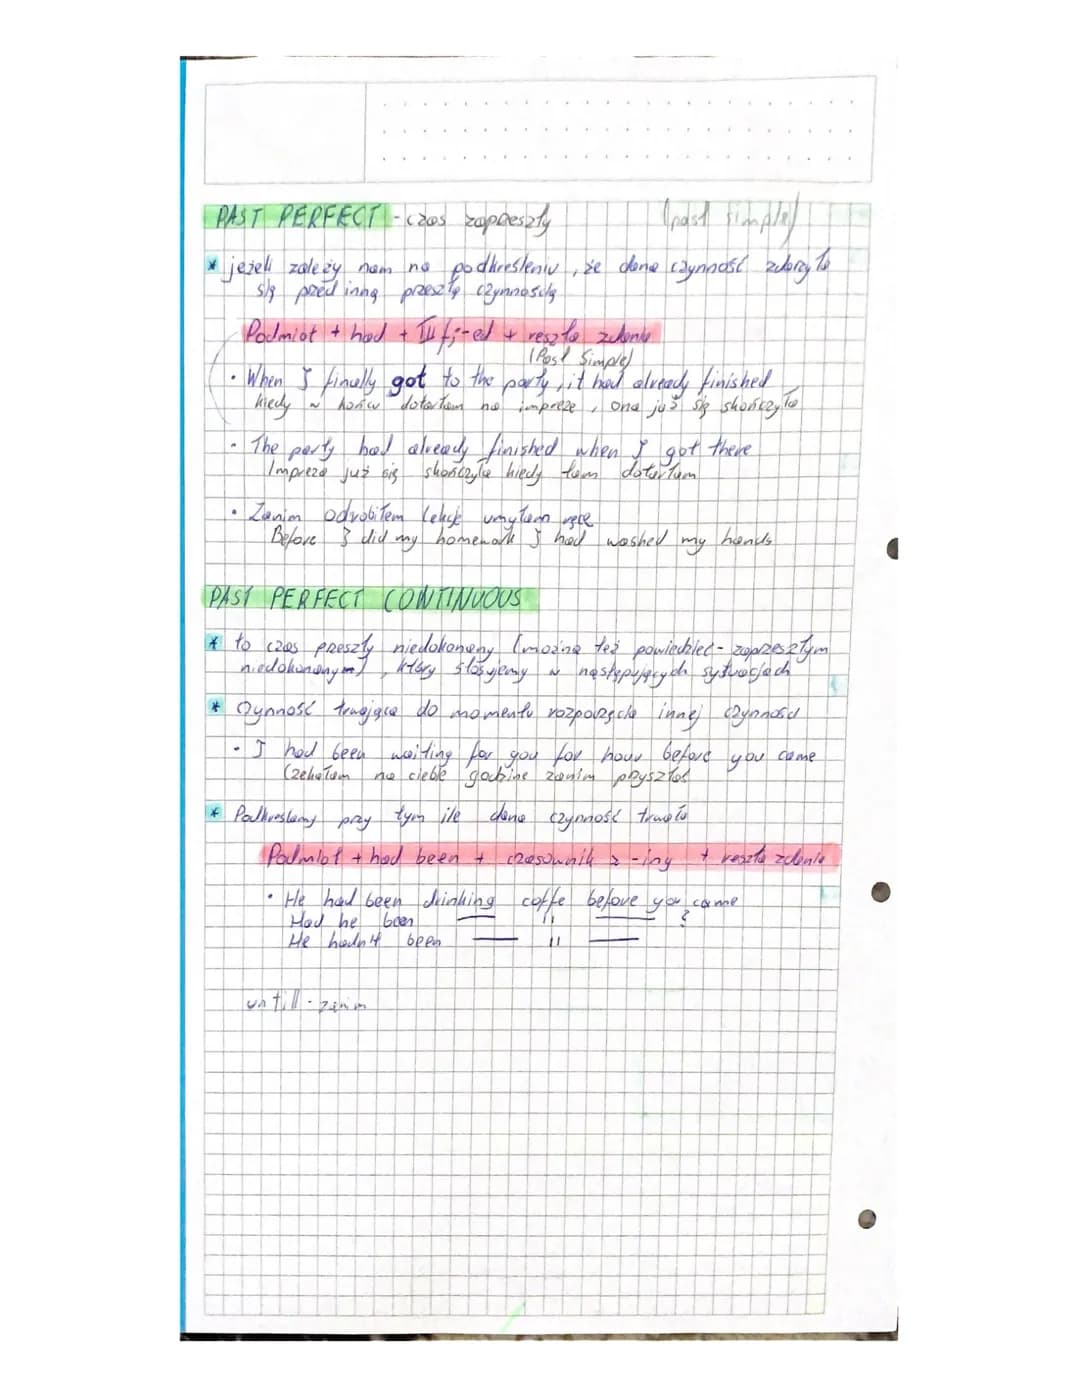 PAST PERFECT - czas zaprzeszły (past simple)
* jeżeli zależy nam na podkreśleniu, że dana czynność zdarzyła
się przed inną przeszłą czynnością
Podmiot + had + III f; -ed + reszta zdania
(Past Simple)
• When I finally got to the party, it had already finished
kiedy w końcu dotarłam na impreze, ona już się skończyła
• The party had already finished when I got there
Impreza już się skończyła kiedy tam dotarłam
• Zanim odrobiłem lekcje umyłam ręce
Before I did my homework I had washed my hands
PAST PERFECT CONTINUOUS
* to czas przeszły niedokonany (można też powiedzieć - zaprzeszłym
niedokonanym), który stosujemy w następujących sytuacjach
* Czynność trwająca do momentu rozpoczęcia innej czynności
• I had been waiting for you for hour before you came
Czekałam na ciebie godzine zanim przyszłoś
* Podkreślamy przy tym ile dana czynność trwała
Podmiot + had been + czasownik z -ing + reszta zdania
• He had been drinking coffe before you came
Had he been — 11 — ?
He hadn't been — 11 —
untill - zanim